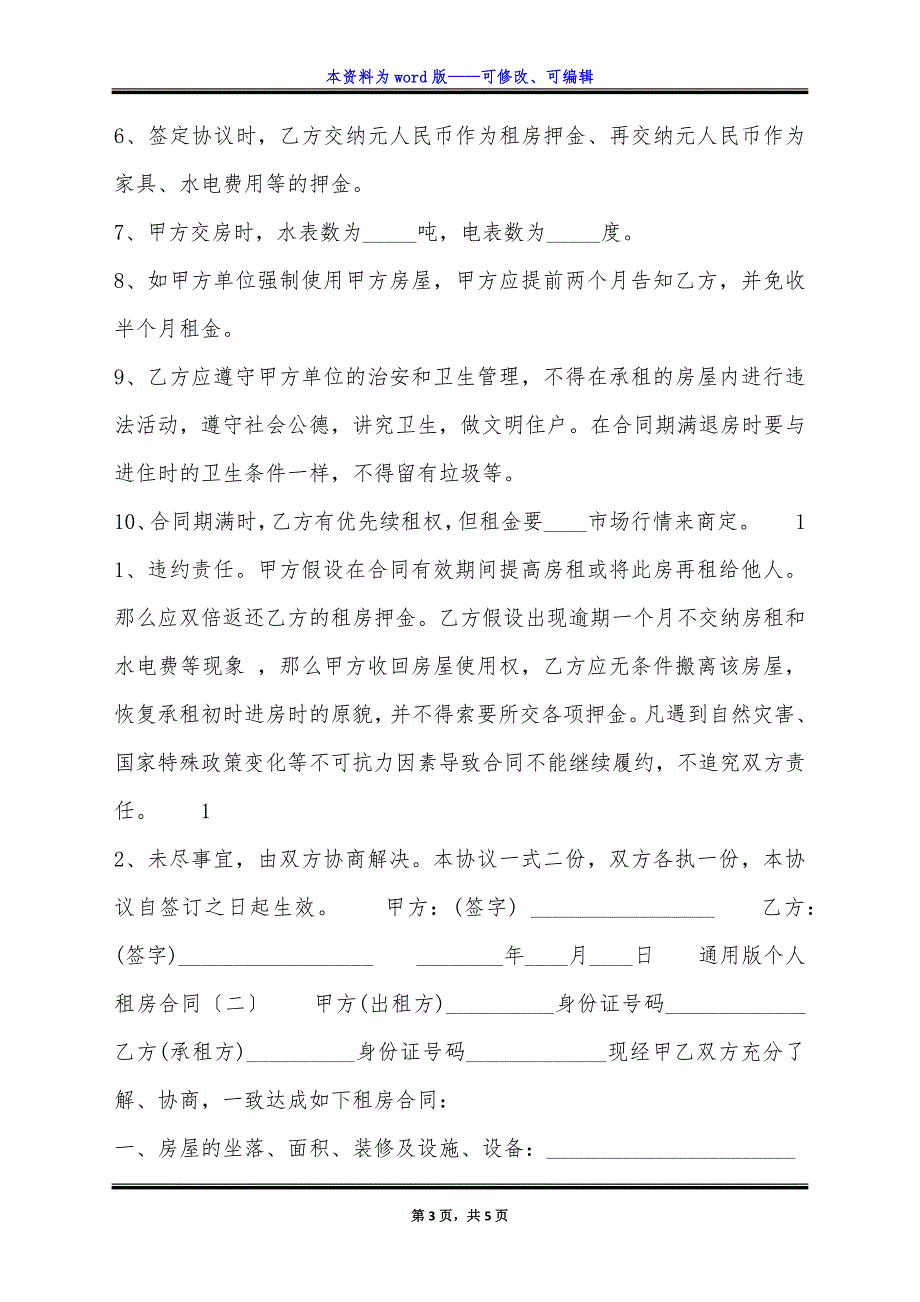 本资料为 word 版——可修改、可编辑
6、签定协议时，乙方交纳元人民币作为租房押金、再交纳元人民币作为
家具、水电费用等的押金。
7、甲方交房时，水表数为_____吨，电表数为_____度。
8、如甲方单位强制使用甲方房屋，甲方应提前两个月告知乙方，并免收
半个月租金。
9、乙方应遵守甲方单位的治安和卫生管理，不得在承租的房屋内进行违
法活动，遵守社会公德，讲究卫生，做文明住户。在合同期满退房时要与
进住时的卫生条件一样，不得留有垃圾等。
10、合同期满时，乙方有优先续租权，但租金要____市场行情来商定。　　1
1、违约责任。甲方假设在合同有效期间提高房租或将此房再租给他人。
那么应双倍返还乙方的租房押金。乙方假设出现逾期一个月不交纳房租和
水电费等现象 ，那么甲方收回房屋使用权，乙方应无条件搬离该房屋，
恢复承租初时进房时的原貌，并不得索要所交各项押金。凡遇到自然灾害、
国家特殊政策变化等不可抗力因素导致合同不能继续履约，不追究双方责
任。　　1
2、未尽事宜，由双方协商解决。本协议一式二份，双方各执一份，本协
议自签订之日起生效。　　甲方：(签字) _________________　　乙方：
(签字)__________________　　________年____月____日　　通用版个人
租房合同〔二〕　　甲方(出租方)__________身份证号码_____________
乙方(承租方)__________身份证号码_____________现经甲乙双方充分了
解、协商，一致达成如下租房合同：
一、房屋的坐落、面积、装修及设施、设备：_______________________
第 3 页，共 5 页